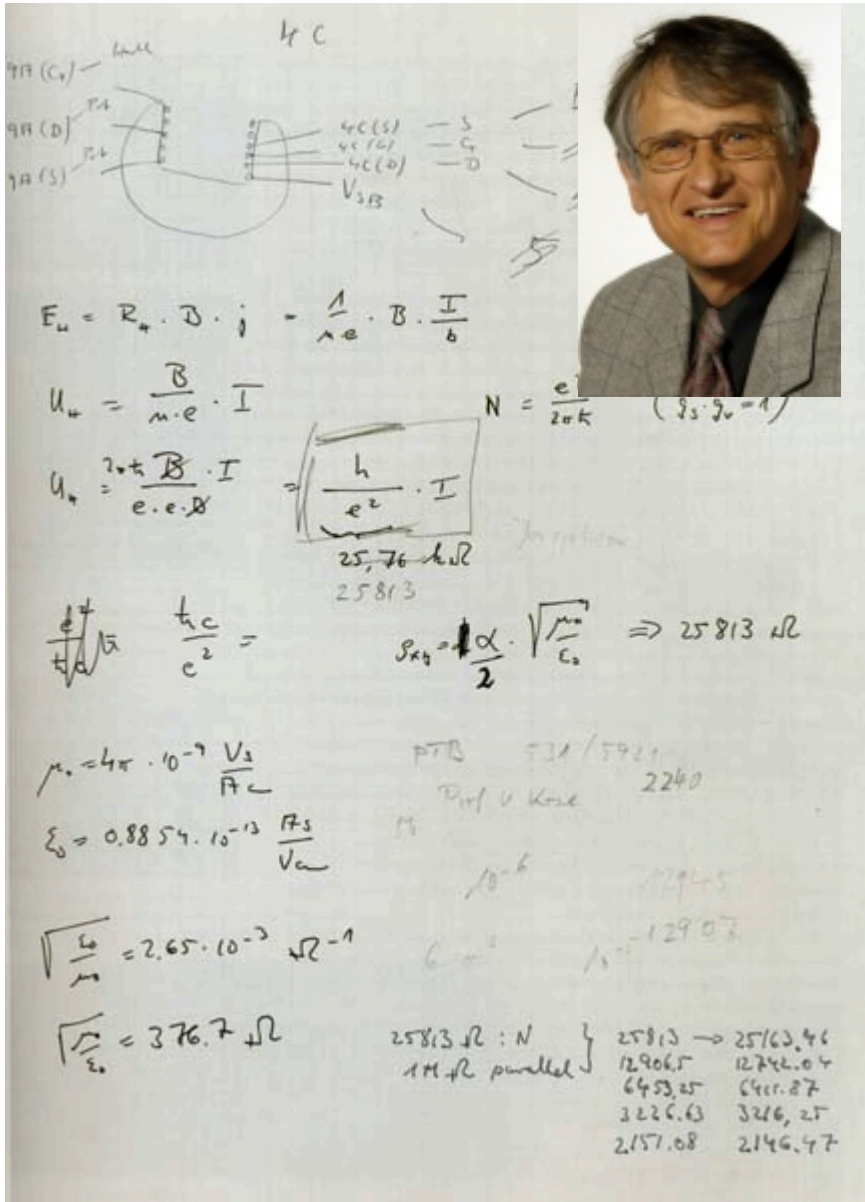 4 C
9A (C
9A (D) Pot
9A (S) Pot
4C (S) — S
4C (G) — G
4C (D) — D
V_SB
E_H = R_H · B · j = 1/(n e) · B · I/b
U_H = B/(n·e) · I
N = e
2πħ (g_s · g_v = 1)
U_H = 2πħ B/(e·e·B) · I = h/e² · I
25,76 kΩ
25813
ħc/e² =
ρ_xy = α/2 · √(μ₀/ε₀) ⇒ 25813 Ω
μ₀ = 4π · 10⁻⁹ Vs/Acm
PTB 531/592
2240
Prof V Kose
ε₀ = 0.8854 · 10⁻¹³ As/Vcm
10⁻⁶ 12945
12907
√(ε₀/μ₀) = 2.65 · 10⁻³ Ω⁻¹
√(μ₀/ε₀) = 376.7 Ω
25813 Ω : N
1MΩ parallel }
25813 → 25163.46
12906.5 12742.04
6453,25 6411.87
3226.63 3216,25
2151.08 2146.47